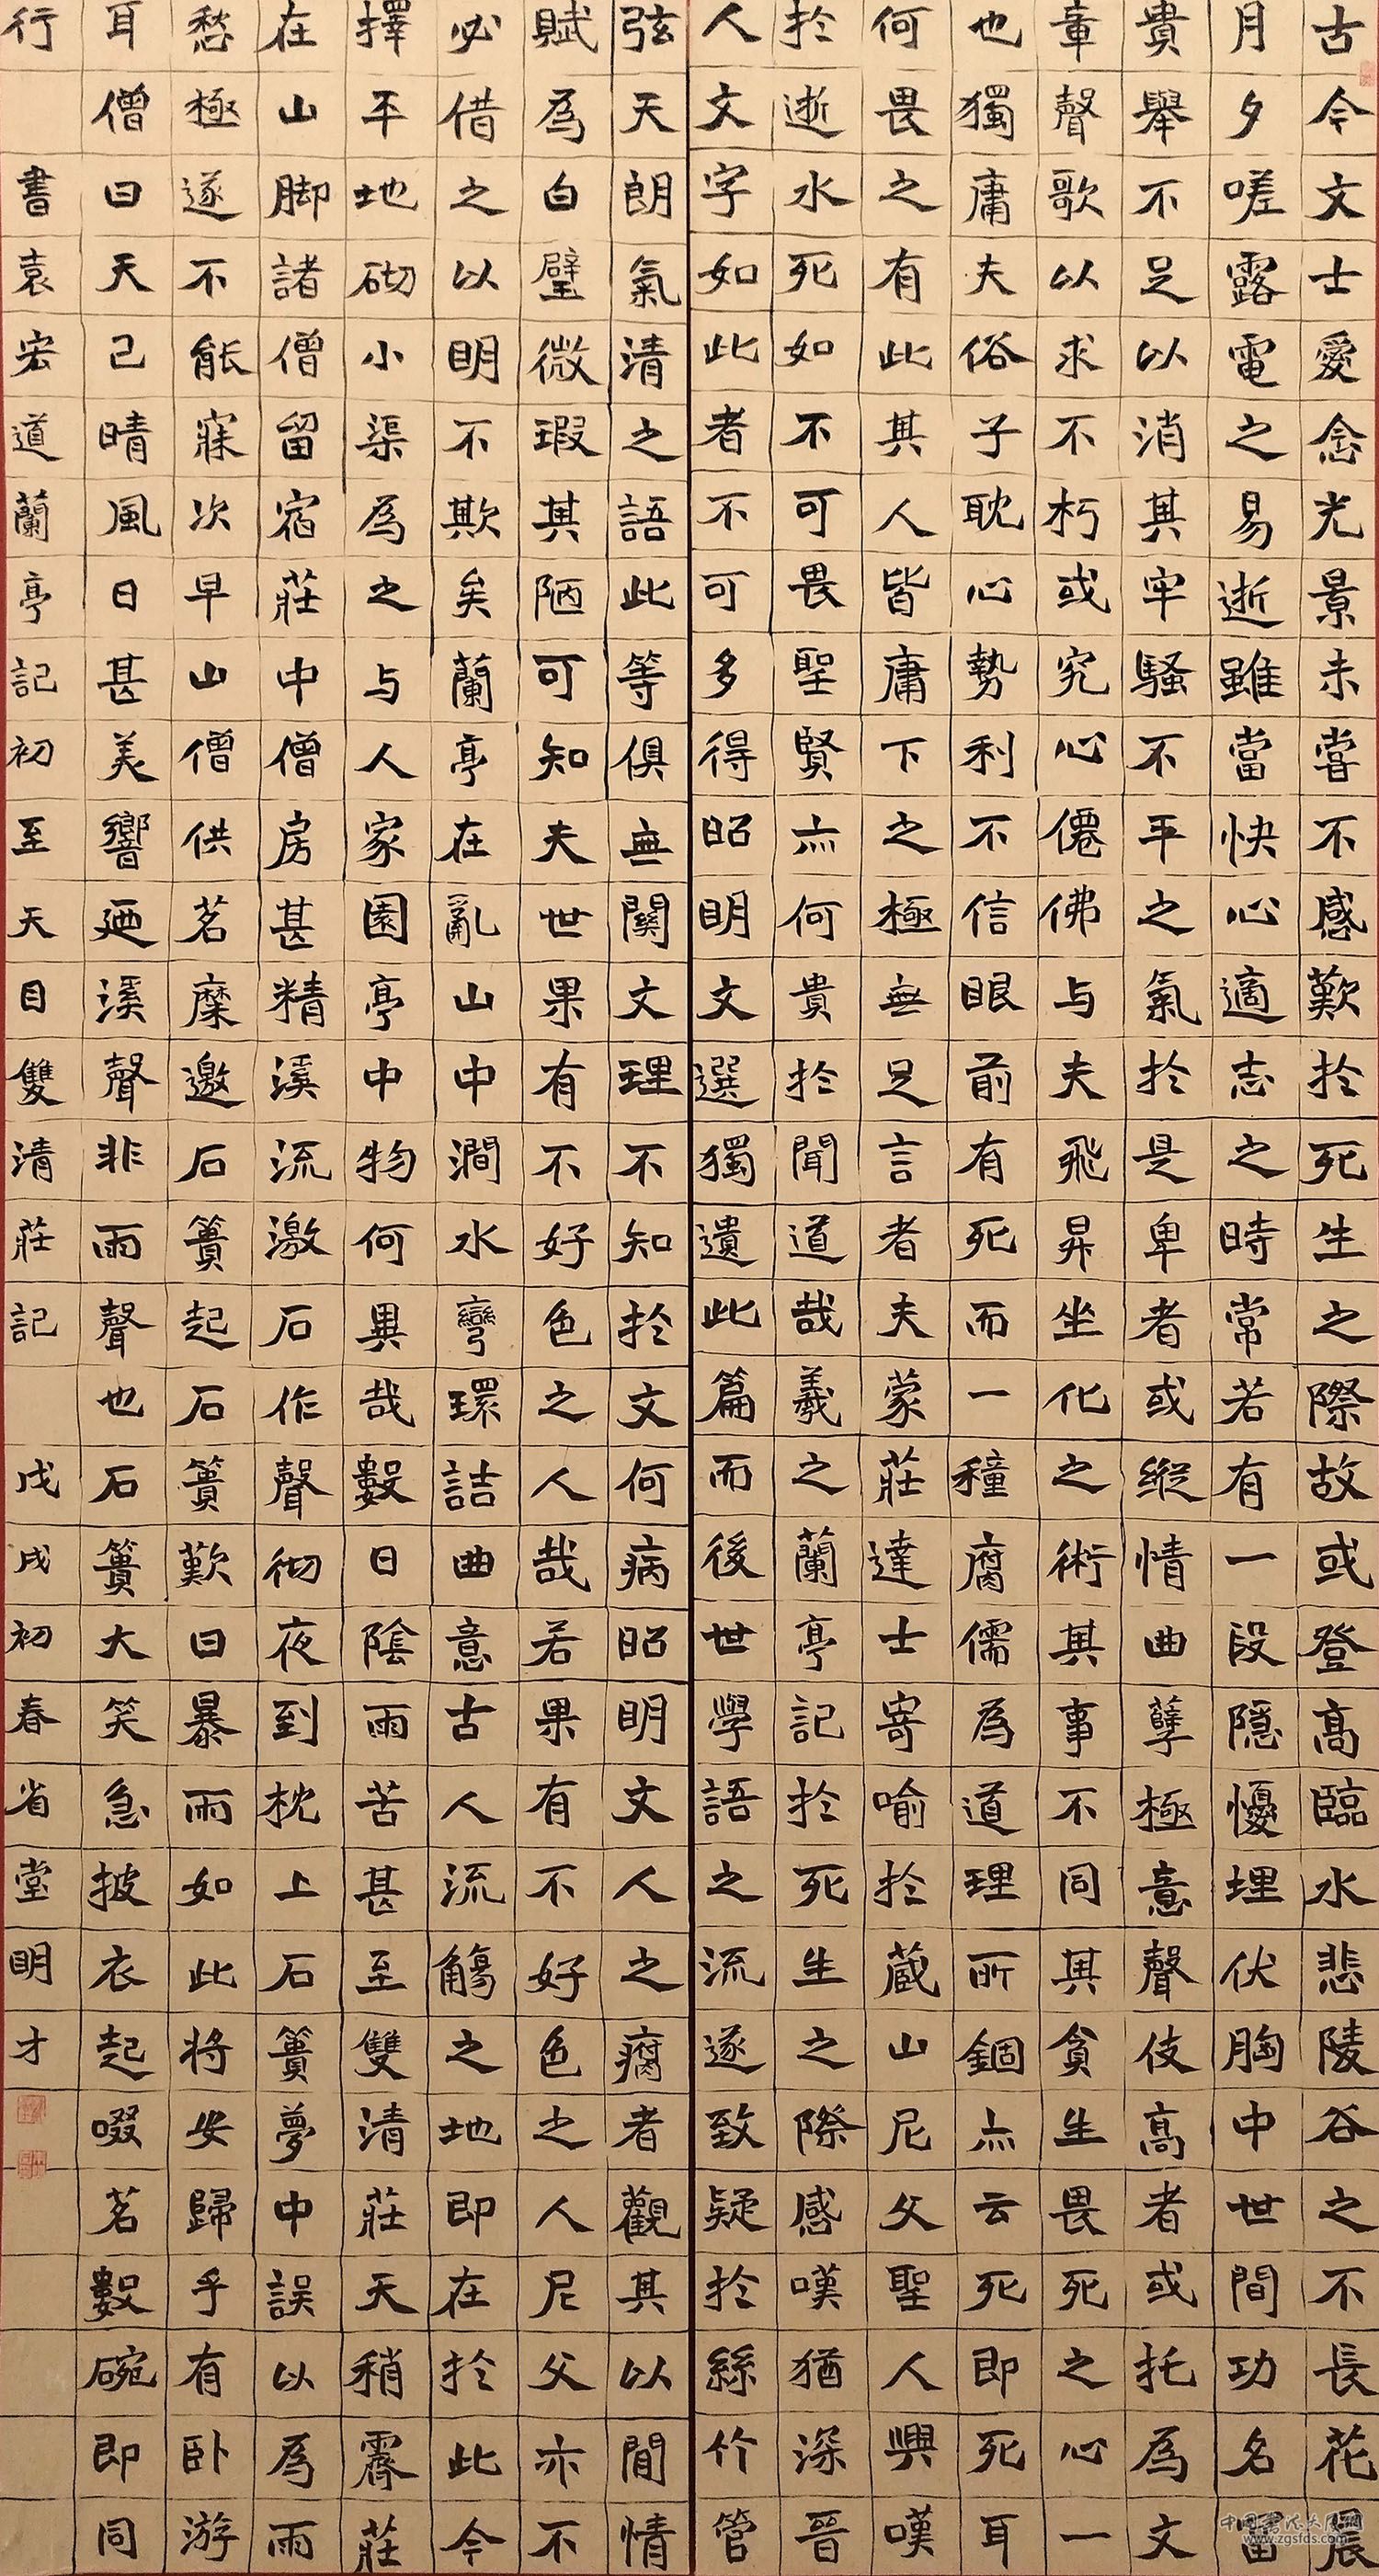 古今文士愛念光景未嘗不感歎於死生之際故或登高臨水悲陵谷之不長花晨
月夕嗟露電之易逝雖當快心適志之時常若有一段隱懮埋伏胸中世間功名富
貴舉不足以消其牢騷不平之氣於是卑者或縱情曲孽極意聲伎高者或托為文
章聲歌以求不朽或究心僊佛与夫飛昇坐化之術其事不同其貪生畏死之心一
也獨庸夫俗子耽心勢利不信眼前有死而一種腐儒為道理所錮亦云死即死耳
何畏之有此其人皆庸下之極無足言者夫蒙莊達士寄喻於藏山尼父聖人興嘆
於逝水死如不可畏聖賢亦何貴於聞道哉羲之蘭亭記於死生之際感嘆猶深晉
人文字如此者不可多得昭明文選獨遺此篇而後世學語之流遂致疑於絲竹管
弦天朗氣清之語此等俱無關文理不知於文何病昭明文人之腐者觀其以閒情
賦為白璧微瑕其陋可知夫世果有不好色之人哉若果有不好色之人尼父亦不
必借之以明不欺矣蘭亭在亂山中澗水彎環詰曲意古人流觴之地即在於此今
擇平地砌小渠為之与人家園亭中物何異哉數日陰雨苦甚至雙清莊天稍霽莊
在山脚諸僧留宿莊中僧房甚精溪流激石作聲彻夜到枕上石簣夢中誤以為雨
愁極遂不能寐次早山僧供茗糜邀石簣起石簣歎曰暴雨如此將安歸乎有卧游
耳僧曰天已晴風日甚美響廼溪聲非雨聲也石簣大笑急披衣起啜茗數碗即同
行 書袁宏道蘭亭記初至天目雙清莊記 戊戌初春省堂明才
中国书法大展网
www.zgsfds.com